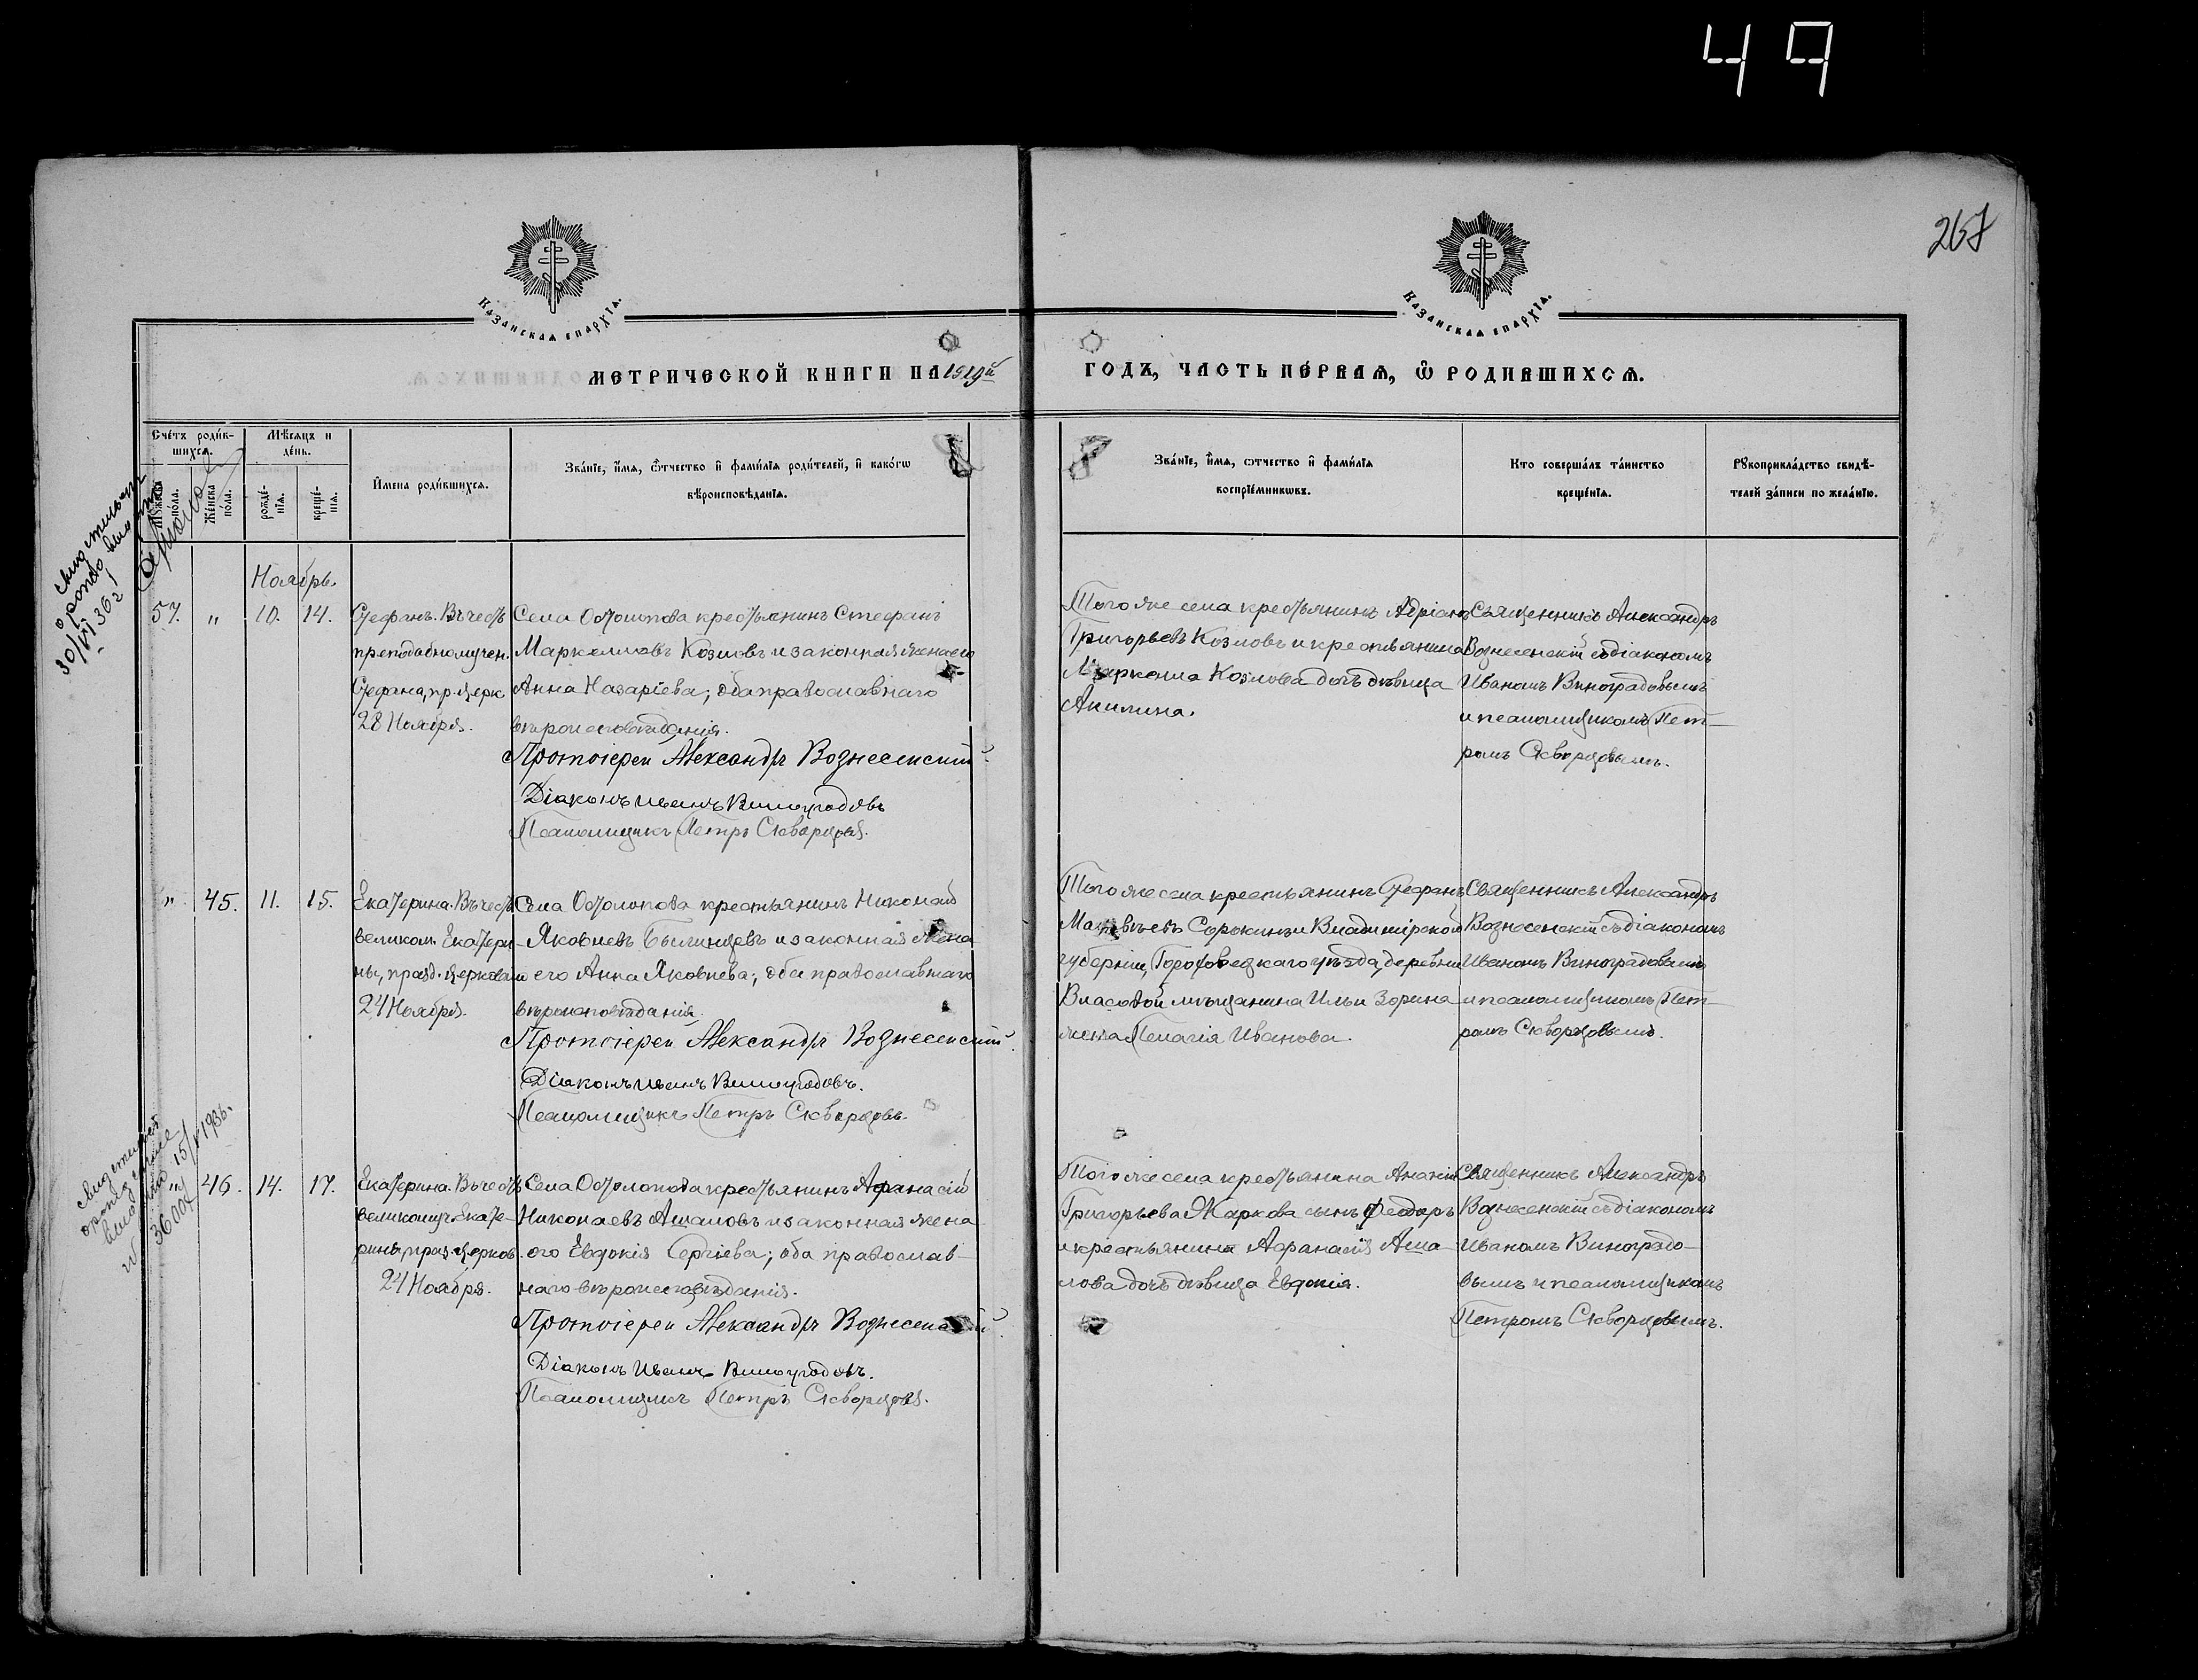 49
267
Казанская епархїѧ.
Казанская епархїѧ.
МЕТРИЧЕСКОЙ КНИГИ НА 1919й
ГОДЪ, ЧАСТЬ ПЕ́РВАѦ, Ѽ РОДИВШИХСѦ.
Сче́тъ роди́в-
шихсѧ.
Мꙋ́жска по́ла.
Же́нска по́ла.
Мѣ́сѧцъ и
де́нь.
рожде́-
нїѧ.
креще́-
нїѧ.
И҆мена роди́вшихсѧ.
Зва́нїе, и҆́мѧ, ѻ҆́тчество и҆ фами́лїѧ роди́телей, и҆ како́гѡ
вѣроисповѣ́данїѧ.
Зва́нїе, и҆́мѧ, ѻтчество и҆ фами́лїѧ
воспрїе́мникѡвъ.
Кто соверша́лъ та́инство
креще́нїѧ.
Рꙋкоприкла́дство свидѣ́-
телей за́писи по жела́нїю.
30/VI 36 г
Ноябрь.
57. " 10. 14.
Стефанъ. Въ честь
преподобномучен.
Стефана, пр. церк.
28 Ноября.
Села Остолопова крестьянинъ Стефанъ
Маркелловъ Козловъ и законная жена его
Анна Назаріева; оба православнаго
вѣроисповѣданія.
Протоіерей Александръ Вознесенскій
Діаконъ Иванъ Виноградовъ
Псаломщикъ Петръ Скворцовъ.
Того же села крестьянинъ Адріанъ
Григорьевъ Козловъ и крестьянина
Маркелла Козлова дочь дѣвица
Акилина.
Священникъ Александръ
Вознесенскій съ діакономъ
Иваномъ Виноградовымъ
и псаломщикомъ Пет-
ромъ Скворцовымъ.
" 45. 11. 15.
Екатерина. Въ честь
великом. Екатери-
ны, празд. церковью
24 Ноября.
Села Остолопова крестьянинъ Николай
Яковлевъ Былинцевъ и законная жена
его Анна Яковлева; оба православнаго
вѣроисповѣданія.
Протоіерей Александръ Вознесенскій.
Діаконъ Иванъ Виноградовъ.
Псаломщикъ Петръ Скворцовъ.
Того же села крестьянинъ Стефанъ
Матвѣевъ Сорокинъ и Владимірской
губерніи, Гороховецкаго уѣзда, деревни
Власовой мѣщанина Ильи Зорина
жена Пелагія Иванова.
Священникъ Александръ
Вознесенскій съ діакономъ
Иваномъ Виноградовымъ
и псаломщикомъ Пет-
ромъ Скворцовымъ.
15/V 1936.
" 46. 14. 17.
Екатерина. Въ честь
великомуч. Екате-
рины, праз. церков.
24 Ноября.
Села Остолопова крестьянинъ Афанасій
Николаевъ Ашаловъ и законная жена
его Евдокія Сергіева; оба православ-
наго вѣроисповѣданія.
Протоіерей Александръ Вознесенскій.
Діаконъ Иванъ Виноградовъ.
Псаломщикъ Петръ Скворцовъ.
Того же села крестьянина Ананіи
Григорьева Жаркова сынъ Феодоръ
и крестьянина Афанасія Аша-
лова дочь дѣвица Евдокія.
Священникъ Александръ
Вознесенскій съ діакономъ
Иваномъ Виноградо-
вымъ и псаломщикомъ
Петромъ Скворцовымъ.